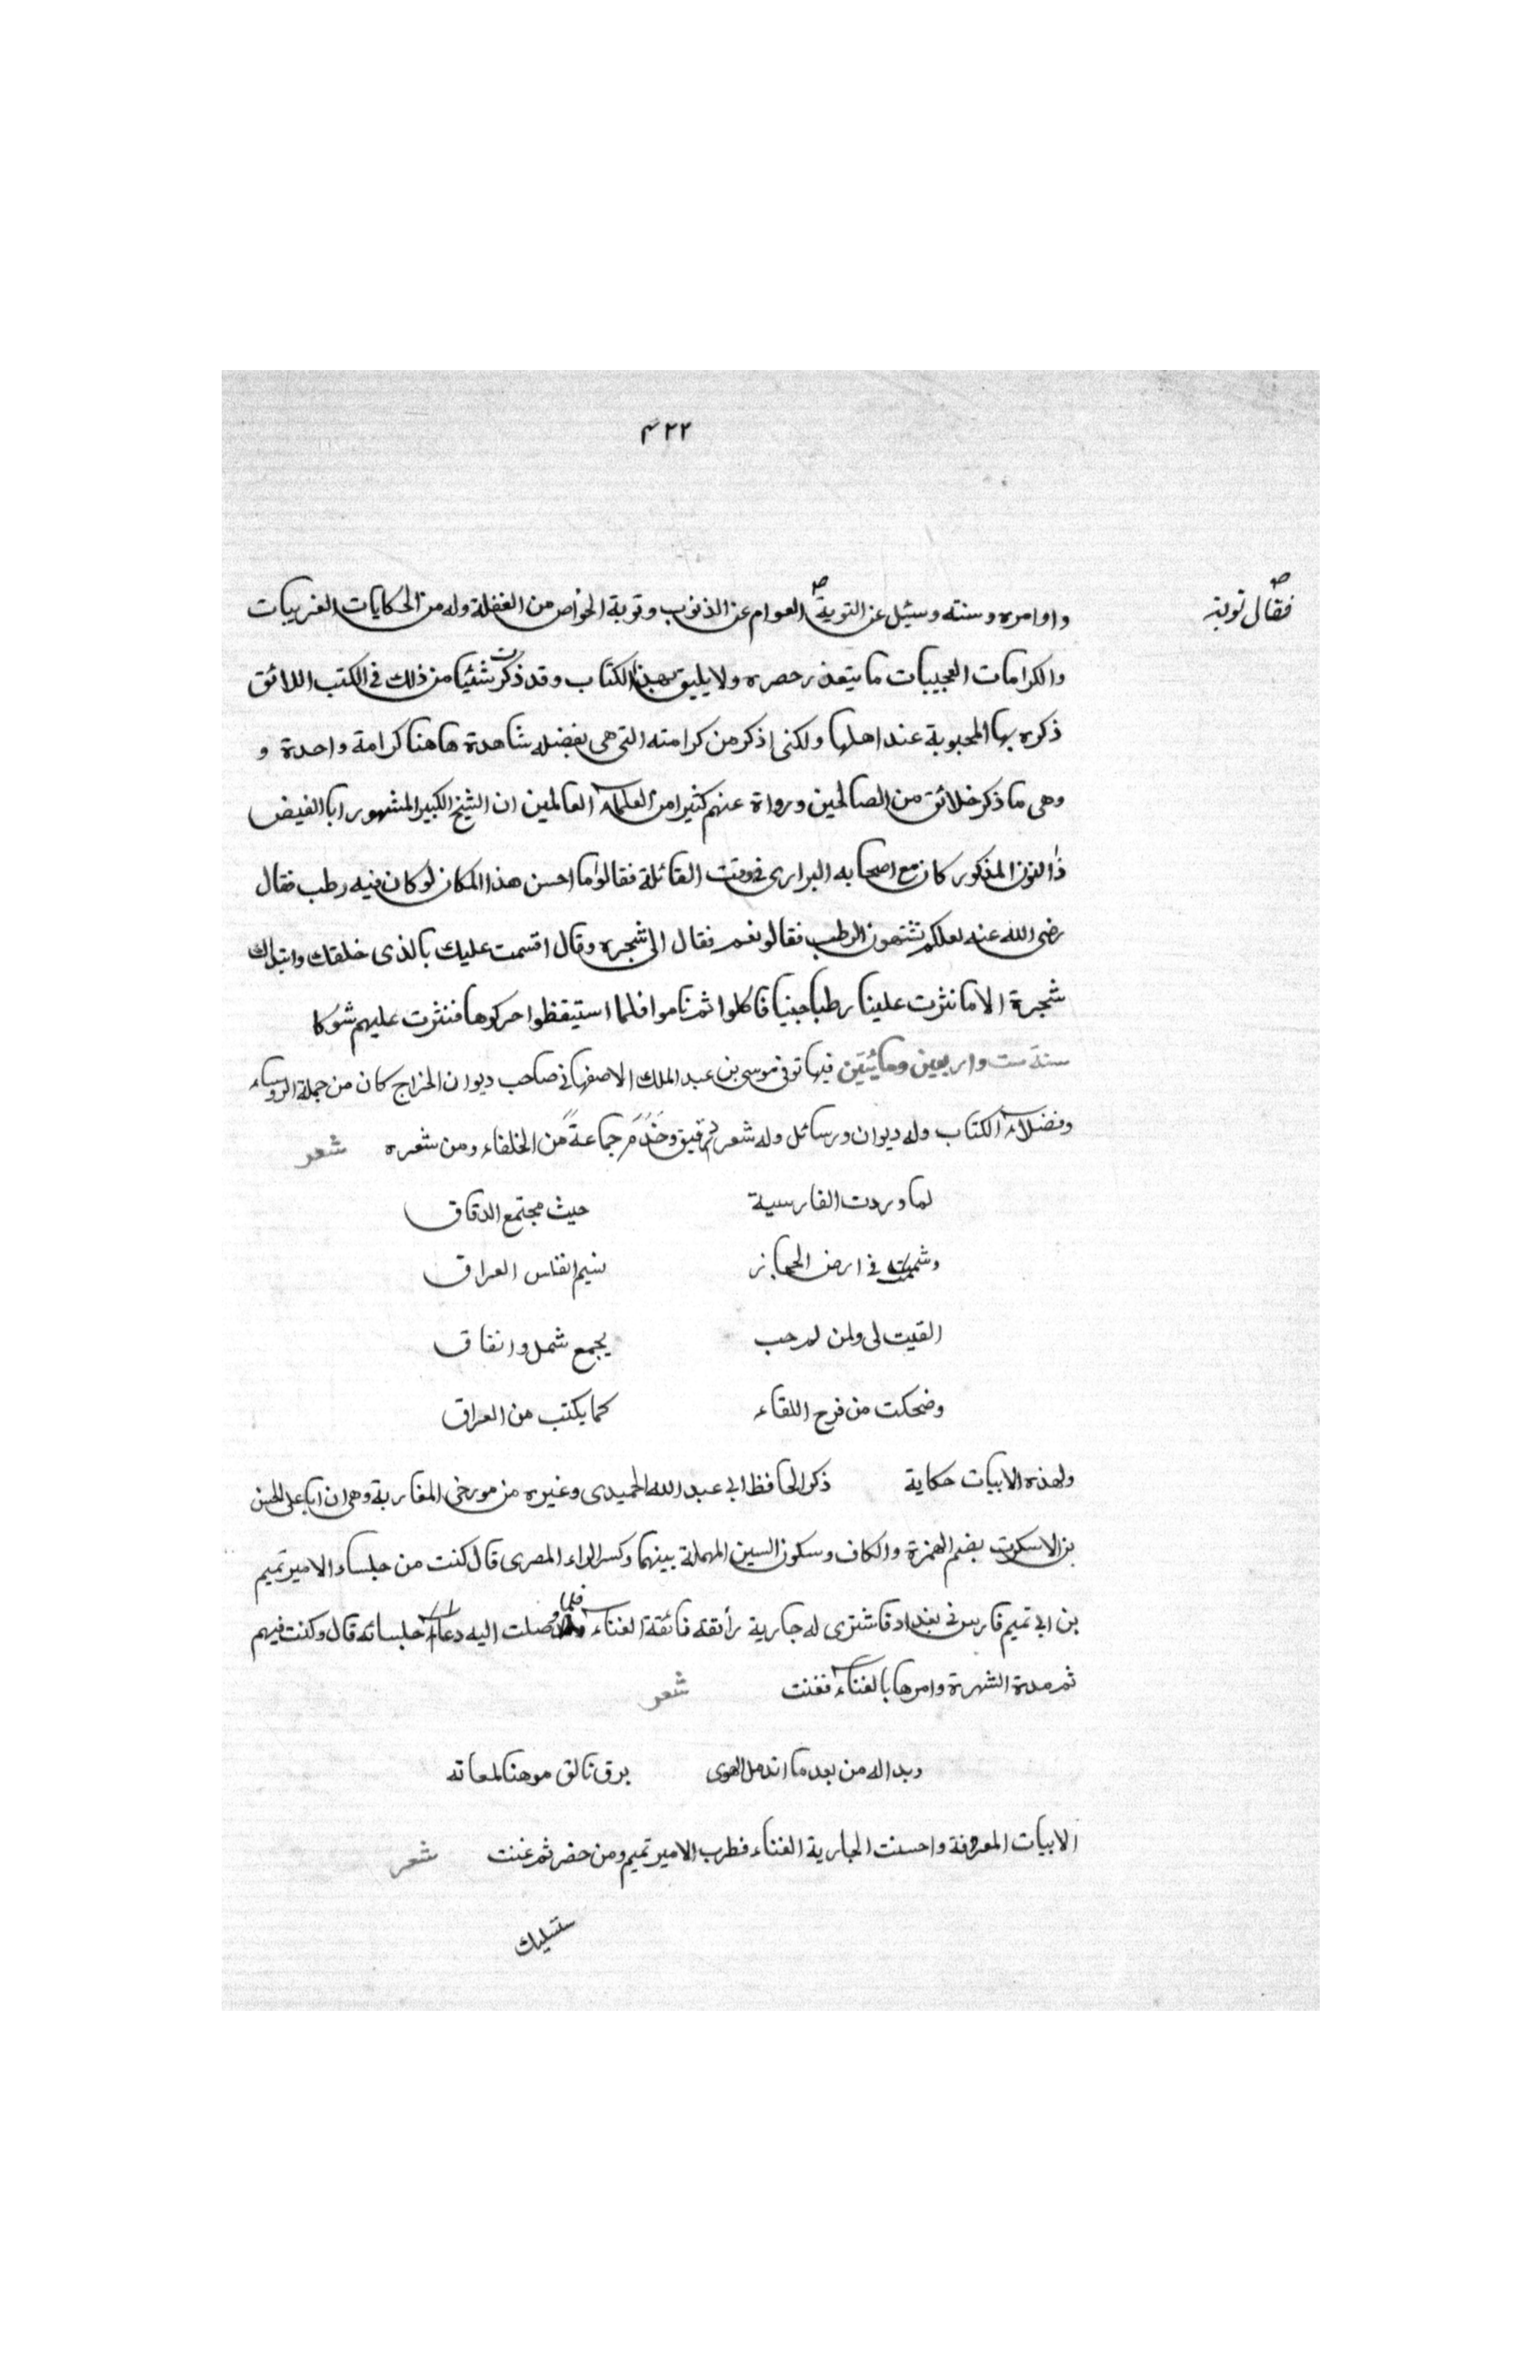 ٤٢٢
فقال توبة
واوامره وسنته وسئل عن التوبة العوام عن الذنوب وتوبة الخواص من الغفلة وله من الحكايات الغريبات
والكرامات العجيبات ما يتعذر حصره ولا يليق بهذا الكتاب وقد ذكرت شئيا من ذلك في الكتب اللائق
ذكره بها المحبوبة عند اهلها ولكني اذكر من كرامته التي هي بفضله شاهدة هاهنا كرامة واحدة و
وهى ما ذكر خلائق من الصالحين ورواة عنهم كثيرا من العلماء العالمين ان الشيخ الكبير المشهور ابا الفيض
ذا النون المذكور كان مع اصحابه البرارى فى وقت القائلة فقالوا ما احسن هذا المكان لو كان فيه رطب فقال
رضى الله عنه لعلكم تشتهون الرطب فقالو نعم فقال الى شجره وقال اقسمت عليك بالذى خلقك وابتداك
شجرة الا ما نثرت علينا رطبا جنيا فاكلوا ثم ناموا فلما استيقظوا حركوها فنثرت عليهم شوكا
سنة ست واربعين ومائيتين فيها توفى موسى بن عبد الملك الاصفهانى صاحب ديوان الخراج كان من جملة الروساء
وفضلاء الكتاب وله ديوان ورسائل وله شعر رقيق وخدم جماعة من الخلفاء ومن شعره شعر
لما وردت الفارسية حيث مجتمع الدقاق
وشممت فى ارض الحجاز نسيم انفاس العراق
القيت لى ولمن لمرحب بجمع شمل واتفاق
وضحكت من فرح اللقاء كما يكتب من العراق
ولهذه الابيات حكاية ذكر الحافظ ابى عبد الله الحميدى وغيره من مورخى المغاربة وهى ان ابا على الحسن
بن الاسكرت بضم الهمزة والكاف وسكون السين المهملة بينهما وكسر الراء المصرى قال كنت من جلساء الامير تميم
بن ابى تميم فارسل فى بغداد فاشترى له جارية رائقة فائقة الغناء فلما وصلت اليه دعا جلسائه قال وكنت فيهم
ثم مدة الشهرة وامرها بالغناء فغنت شعر
وبدا له من بعد ما اندمل الهوى برق تالق موهنا لمعانه
الابيات المعرفة واحسنت الجارية الغناء فطرب الامير تميم ومن حضر ثم غنت شعر
ستسليك